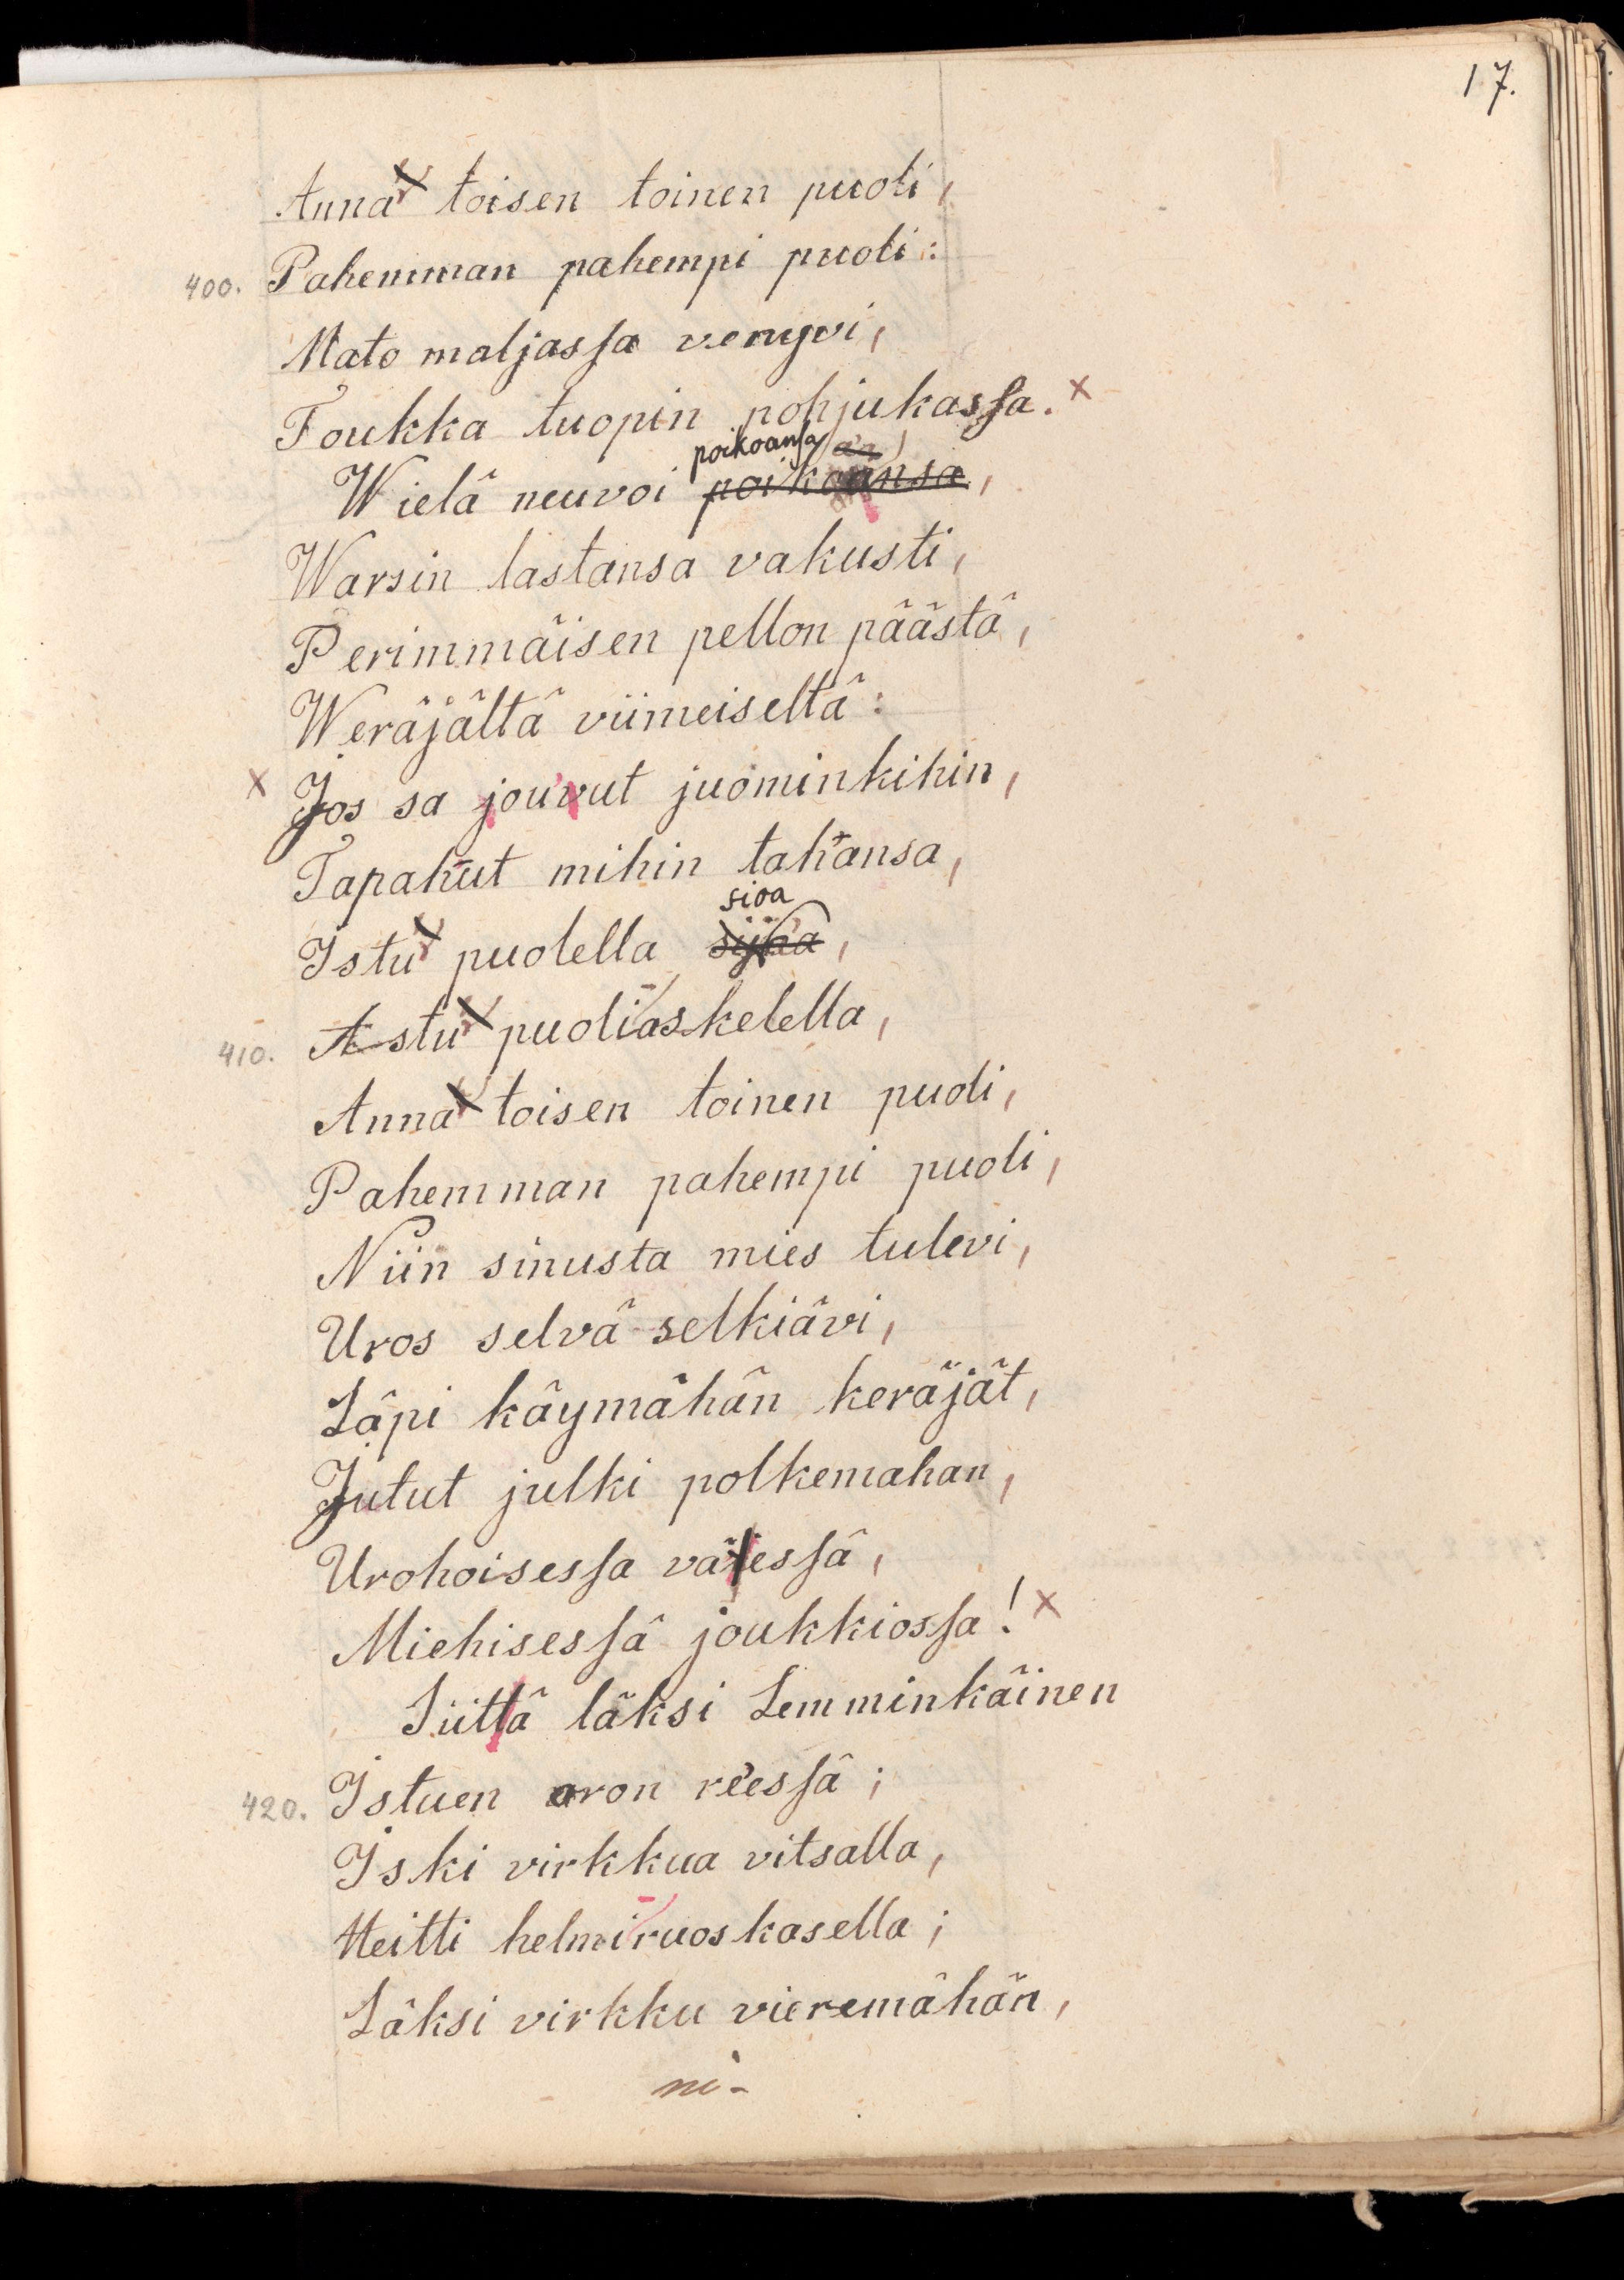 17.
Anna toisen toinen puoli,
400. Pahemman pahempi puoli:
Mato maljassa venyvi,
Toukka tuopin pohjukassa. x
poikoansa
Wielä neuvoi poikoansa,
Warsin lastansa vakusti,
Perimmäisen pellon päästä,
Weräjältä viimeiseltä:
x Jos sa jouvut juominkihin,
Tapahut mihin tahansa,
sioa
Istu puolella sijoa,
410. Astu puoli-askelella,
Anna toisen toinen puoli,
Pahemman pahempi puoli,
Niin sinusta mies tulevi,
Uros selvä selkiävi,
Läpi käymähän keräjät,
Jutut julki polkemahan,
Urohoisessa väessä,
Miehisessä joukkiossa! x
Siitä läksi Lemminkäinen
420. Istuen oron re'essä;
Iski virkkua vitsalla,
Heitti helmi-ruoskasella;
Läksi virkku vieremähän,
ni-